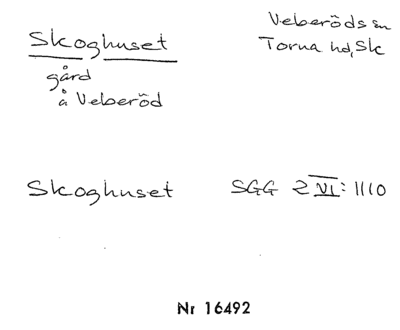 Skoghuset
Veberöds sn
Torna hd, Sk
gård
å Veberöd
Skoghuset
SGG 2 VI: 1110
Nr 16492